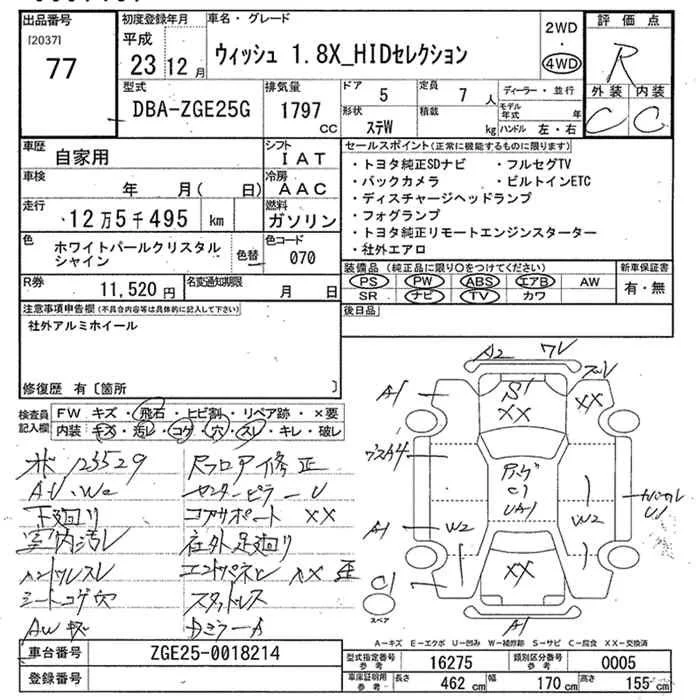 出品番号
[2037]
77
初度登録年月
平成
23年12月
車名・グレード
ウィッシュ 1.8X_HIDセレクション
2WD
・
4WD
評価点
R
外装 内装
C C
型式
DBA-ZGE25G
排気量
1797
cc
ドア
5
定員
7人
形状
ステW
積載
kg
ディーラー・並行
モデル年式 年
ハンドル 左・右
車歴
自家用
シフト
IAT
車検
年 月( 日)
冷房
AAC
走行
12万5千495 km
燃料
ガソリン
色
ホワイトパールクリスタル
シャイン
色替
色コード
070
R券
11,520円
名変通知期限
月 日
セールスポイント(正常に機能するものに限ります)
・トヨタ純正SDナビ ・フルセグTV
・バックカメラ ・ビルトインETC
・ディスチャージヘッドランプ
・フォグランプ
・トヨタ純正リモートエンジンスターター
・社外エアロ
装備品(純正品に限り○をつけてください)
PS PW ABS エアB AW
SR ナビ TV カワ
新車保証書
有・無
後日品
注意事項申告欄(不具合内容等は具体的に記入して下さい)
社外アルミホイール
修復歴 有〔箇所 〕
検査員
記入欄
FW キズ・飛石・ヒビ割・リペア跡・×要
内装 キズ・汚レ・コゲ・穴・スレ・キレ・破レ
123529
下廻り
室内汚レ
ハンドルスレ
シートコゲ穴
Rフロア修正
センターピラーU
コアサポート XX
社外足廻り
エンドパネル XX 歪
スタッドレス
A2
A1
S1
XX
XX
C1
W2
W2
A1
XX
C1
A1
スペア
A-キズ E-エクボ U-凹み W-補修跡 S-サビ C-腐食 XX-交換済
車台番号
ZGE25-0018214
登録番号
型式指定番号
参考
16275
類別区分番号
参考
0005
車庫証明用
参考
長さ
462cm
幅
170cm
高さ
155cm